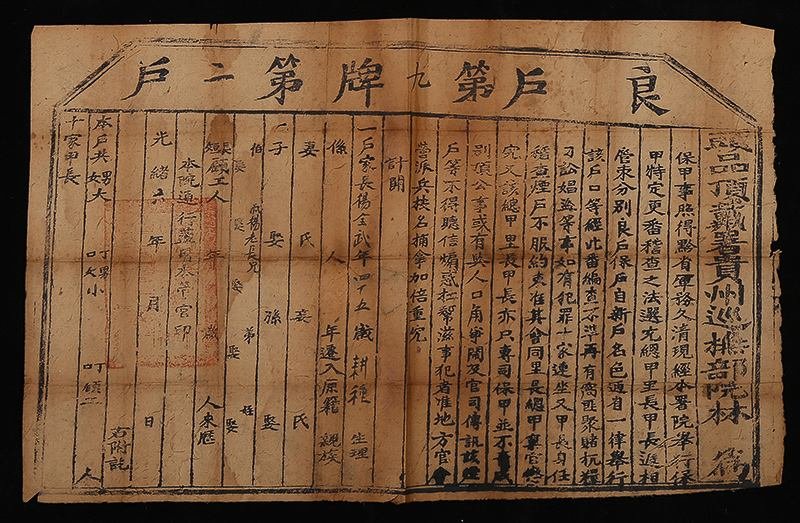 良户第九牌第二户
頭品頂戴署貴州巡撫部院林 為
保甲事照得黔省軍務久清現經本署院舉行保
甲特定更番稽查之法選充總甲里長甲長逓相
管束分别良户保户自新户名色通省一律舉行
該户口等經此番編查不准再有窩匪聚賭抗粮
刁訟娼盗等事如有犯罪十家連坐又甲長身任
稽查煙户不服約束准其會同里長總甲稟官
究又該總甲里長甲長亦只專司保甲並不
别項公事或有與人口角爭鬧及官司傳訊該
户等不得聽信煽惑拉幫滋事犯者准地方官會
營派兵按名捕拿加倍重究
計開
一户家長楊全武年四十五歲 耕種 生理
係 人 年遷入原籍 親族
妻 氏 妾 氏
子 娶 孫 娶
伯 叔楊老長兄 弟 姪
娶 娶 娶 娶
長短雇工人 年 歲 人來歷
本院通行蓋用本管官印
光緒六年 月 日
右附註
本户共男女大 丁口男女小 丁口 領二 人
十家甲長